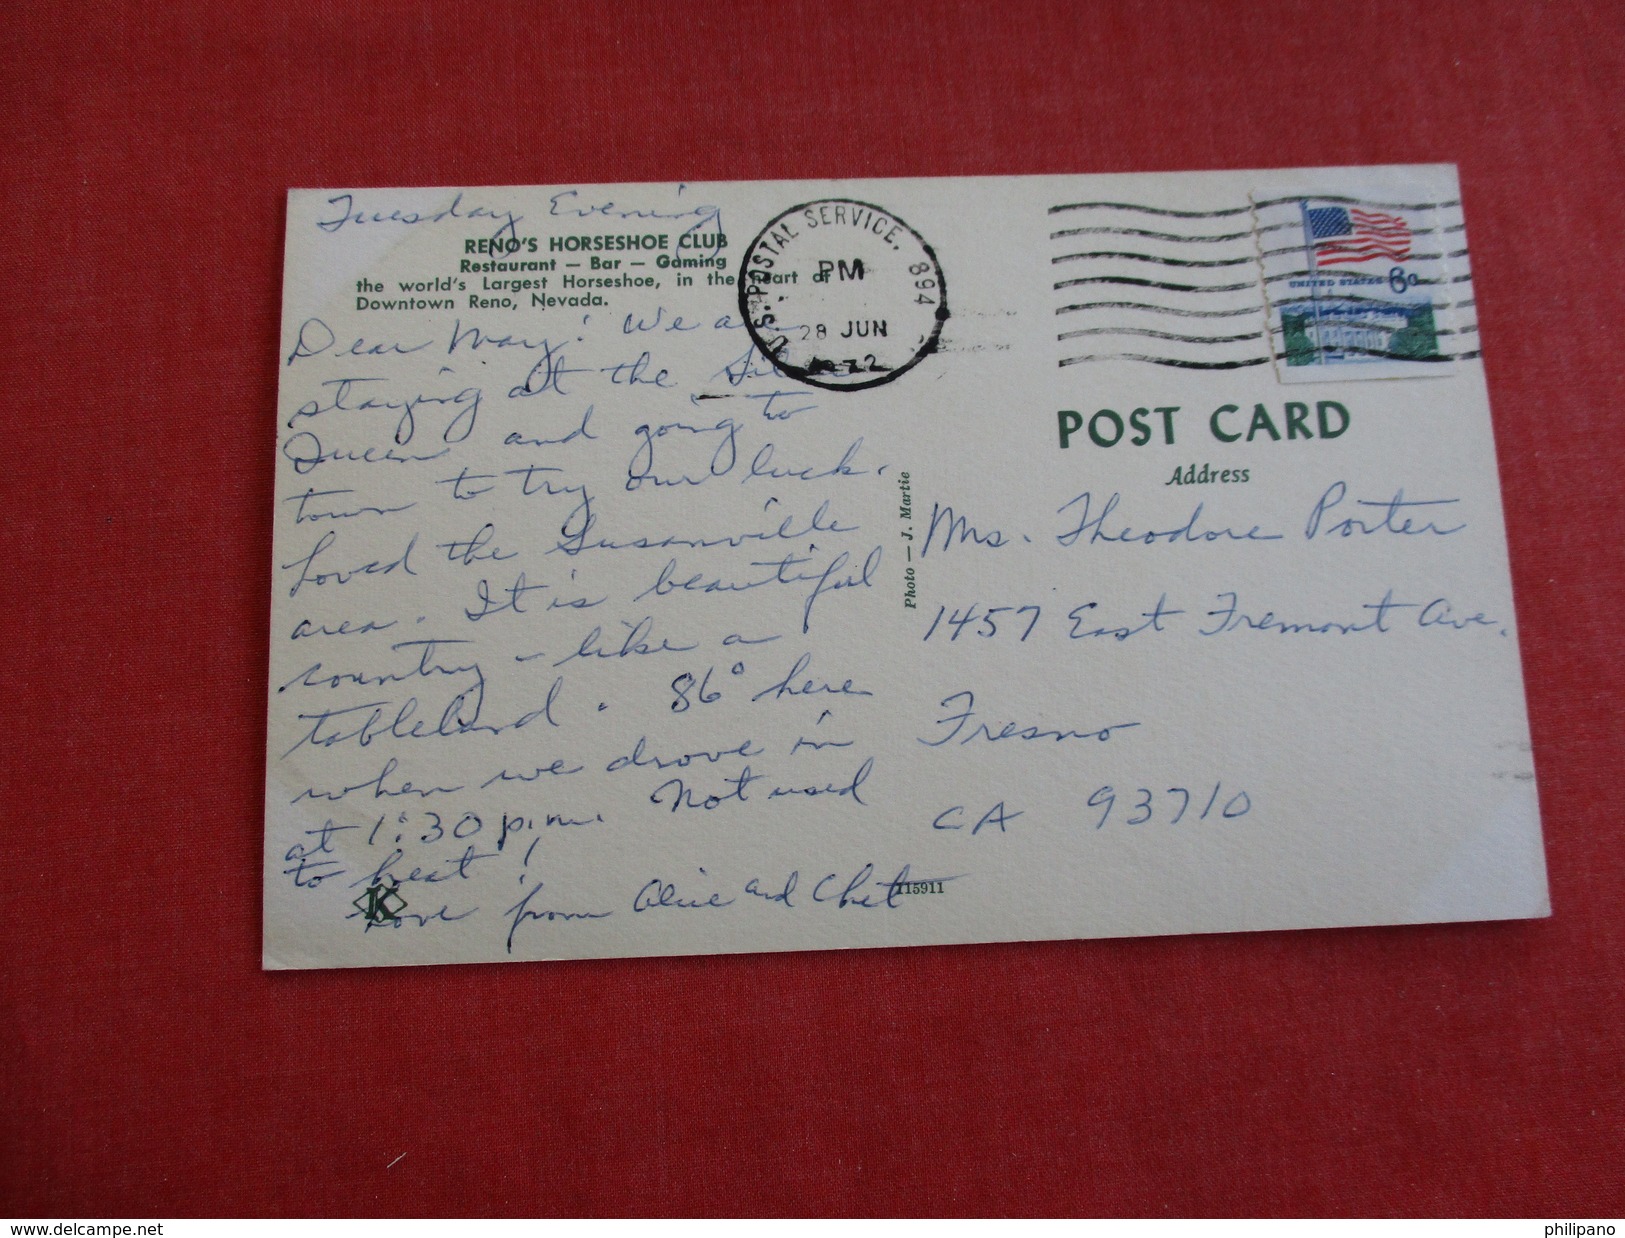 Tuesday Evening
RENO'S HORSESHOE CLUB
Restaurant — Bar — Gaming
the world's Largest Horseshoe, in the heart of
Downtown Reno, Nevada.
Dear Mary: We are
staying at the Silver
Queen and going to
town to try our luck.
Loved the Susanville
area. It is beautiful
country - like a
tableland. 86° here
when we drove in
at 1:30 p.m. Not used
to heat!
Love from Alice and Chet
K
115911
Photo — J. Martie
U.S. POSTAL SERVICE, 894
PM
28 JUN
1972
UNITED STATES 6c
POST CARD
Address
Mrs. Theodore Porter
1457 East Fremont Ave.
Fresno
CA 93710
www.delcampe.net
philipano